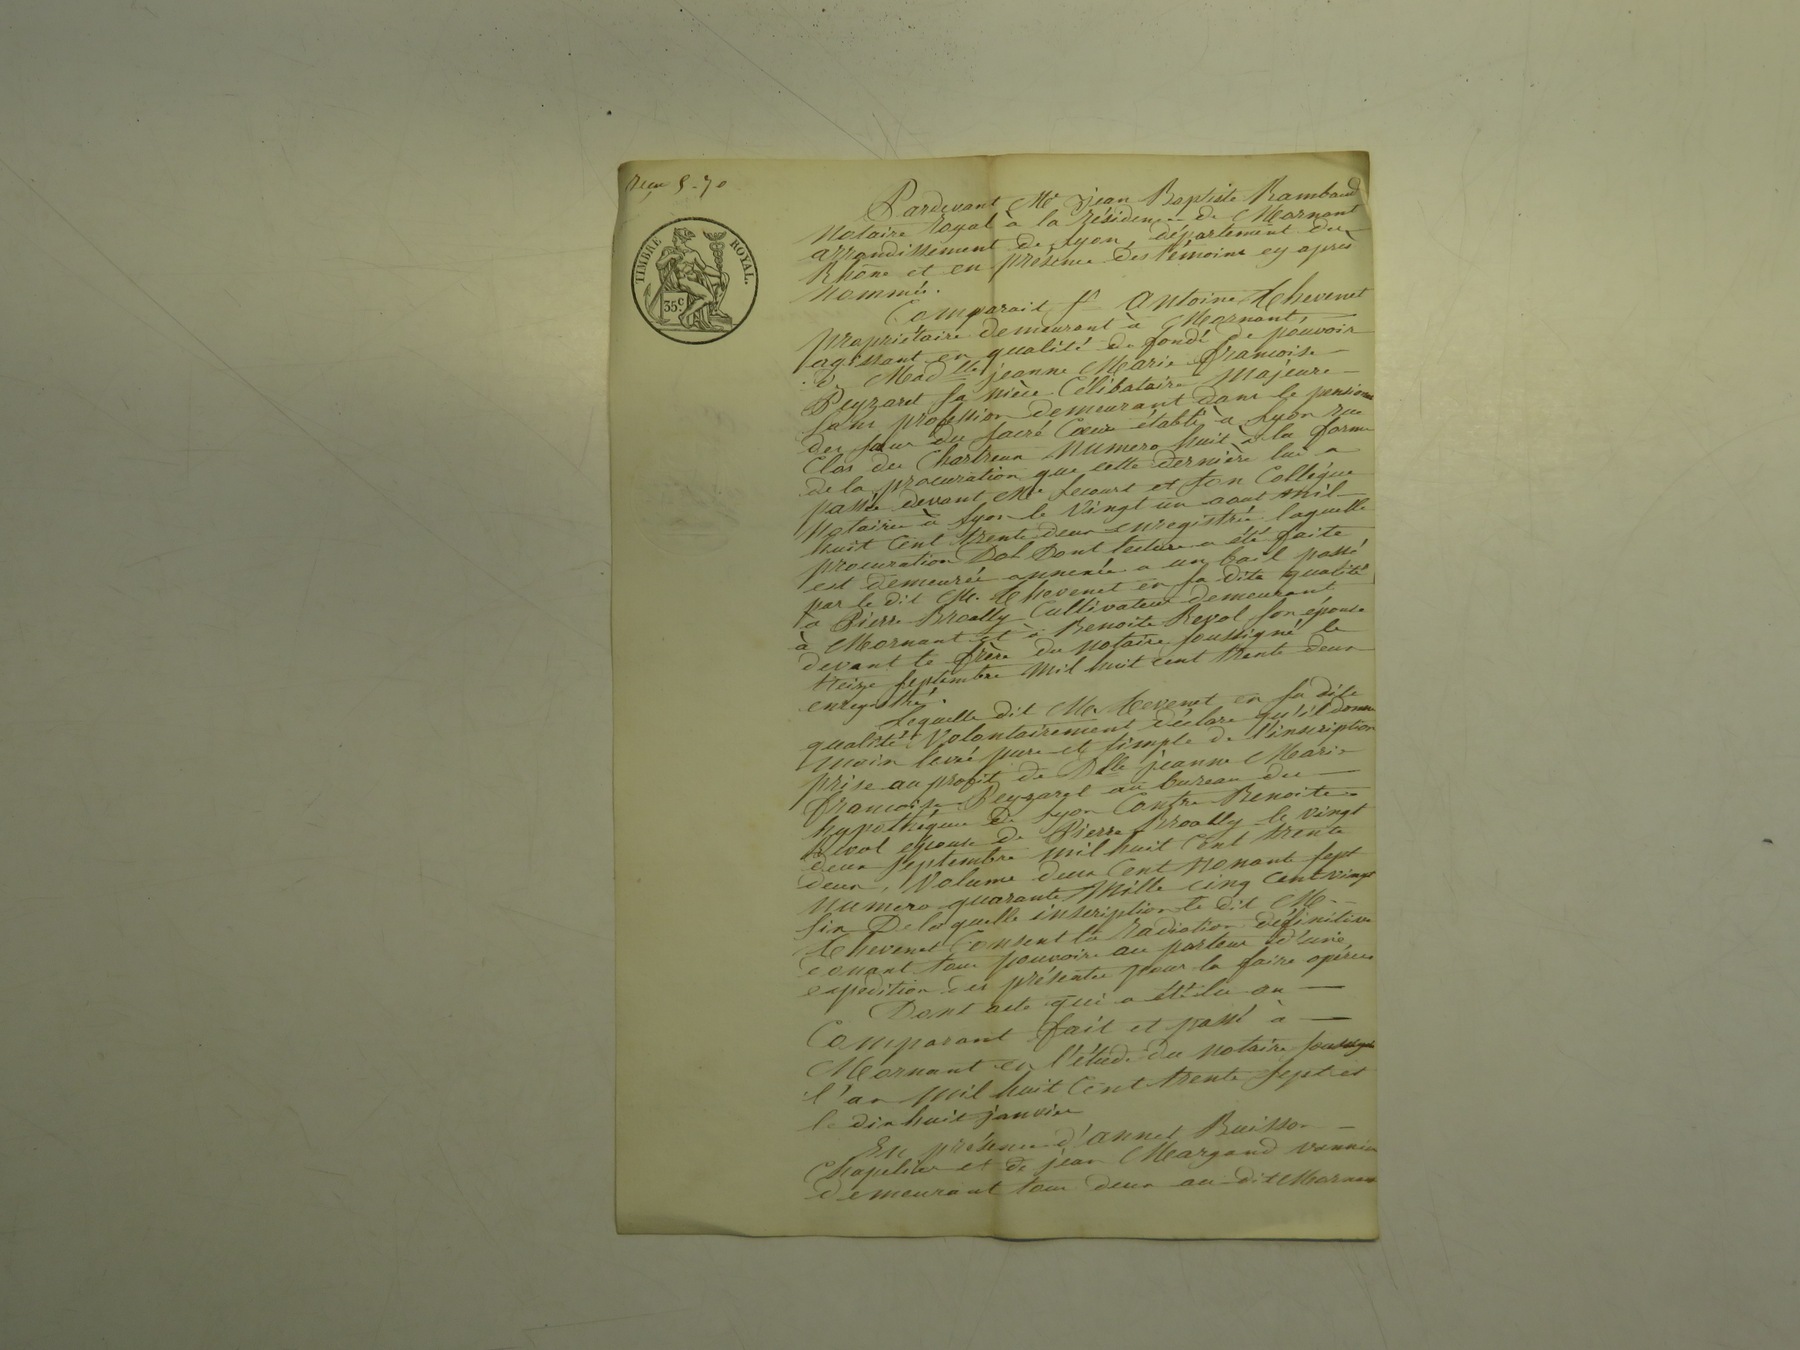 reçu 5-70
TIMBRE ROYAL.
35 c.
Pardevant Me jean Baptiste Rambaud
Notaire Royal à la résidence de Mornant
arrondissement de Lyon, département du
Rhône et en présence des témoins cy après
nommés.
Comparait Sr Antoine Thevenet
propriétaire demeurant à Mornant,
agissant en qualité de fondé de pouvoir
de Madlle jeanne Marie françoise
Peyzaret sa nièce Célibataire majeure
sans profession demeurant dans le pension
des sœurs du sacré Cœur établi à Lyon rue
Clos des Chartreux Numero huit à la forme
de la procuration que cette dernière lui a
passée devant Me Lecourt et son Collégue
Notaires à Lyon le Vingt un aout mil
huit Cent trente deux enregistrée laquelle
procuration dont lecture a été faite
est demeurée annexée a un bail passé
par le dit M. Thevenet en sa dite qualité
à Pierre Broally Cultivateur demeurant
à Mornant et à Benoite Revol son epouse
devant le frère du notaire soussigné le
treize septembre mil huit cent trente deux
enregistré.
Lequelle dit Me Tevenet en sa dite
qualité Volontairement déclare qu'il donne
main levée pure et simple de l'inscription
prise au profit de Dlle jeanne Marie
françoise Peyzaret au bureau des
hypothéques de Lyon Contre Benoite
Revol epouse de Pierre Broally le vingt
deux septembre mil huit Cent trente
deux, Volume deux Cent Nonante sept
Numero quarante Mille cinq Cent vingt
six De laquelle inscription le dit M.
Thevenet Consent la radiation définitive
donant tous pouvoirs au porteur d'une
expedition des présentes pour la faire opérer
Dont acte qui a été lu au
Comparant fait et passé à
Mornant en l'étude du notaire soussigné
l'an mil huit Cent trente sept et
le dix huit janvier
En présence d'Annet Buisson
Chapelier et de jean Margand vannier
demeurant tous deux au dit Mornant